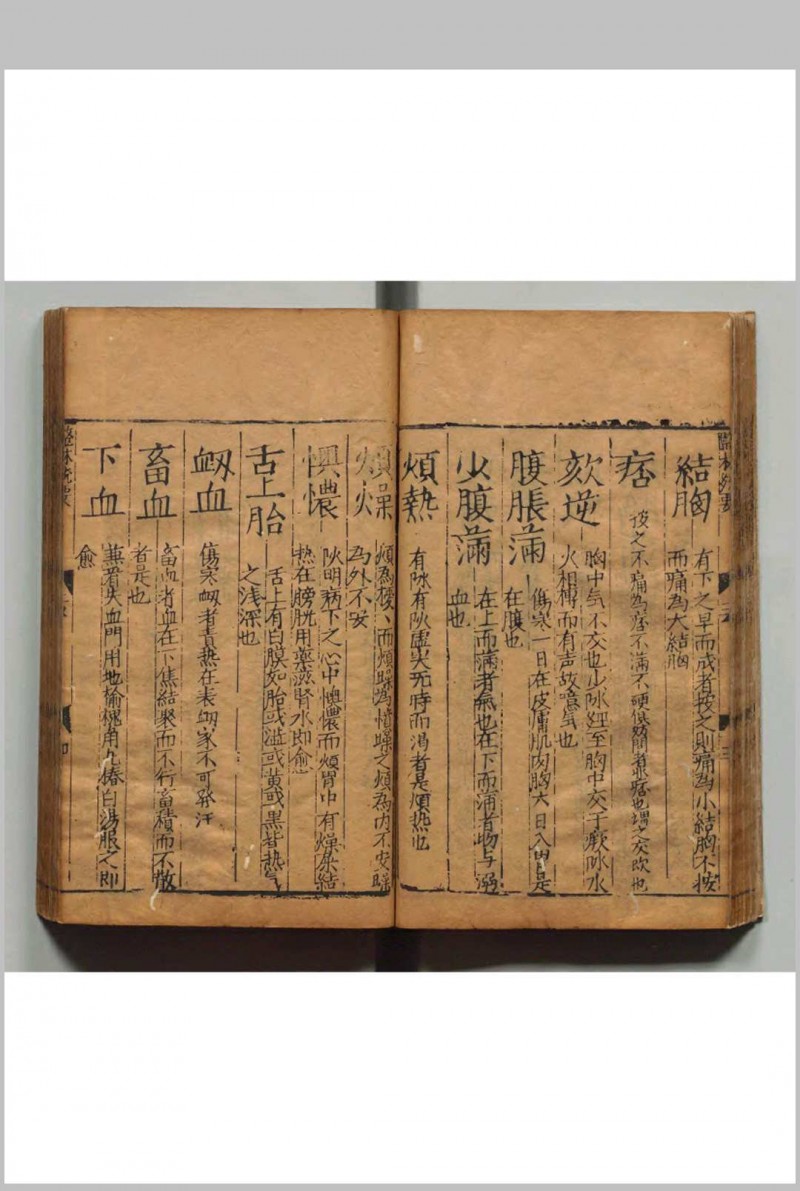 結胸
有下之早而成者按之則痛為小結胸不按
而痛為大結胸
痞
按之不痛為痞不滿不硬
也
欬逆
胸中气不交也少阴經至胸中交于厥阴水
火相搏而有声故噫气也
腹脹滿
傷寒一日在皮膚肌肉胸六日入胃是
在腹也
少腹滿
在上而滿者氣也在下而滿者物与溺
血也
煩熱
有阴有阳虚实无時而渴者是煩熱也
煩燥
煩為擾、而煩
之煩為内不安
為外不安
懊憹
阳明病下之心中懊憹而煩胃中有燥屎結
热在膀胱用藥滋腎水即愈
舌上胎
舌上有白膜如胎或澁或黄或黑皆热气
之浅深也
衂血
傷寒衂者責热在表衂家不可發汗
畜血
畜血者血在下焦結聚而不行畜積而不散
者是也
下血
兼看失血門用地榆槐角
白湯服之即
愈